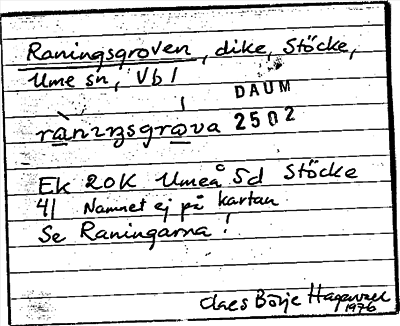 Raningsgroven, dike, Stöcke,
Ume sn, Vbl
DAUM
rànıŋsgrova 2502
Ek 20K Umeå Sd Stöcke
41 Namnet ej på kartan
Se Raningarna!
Claes Börje Hagervall
1976